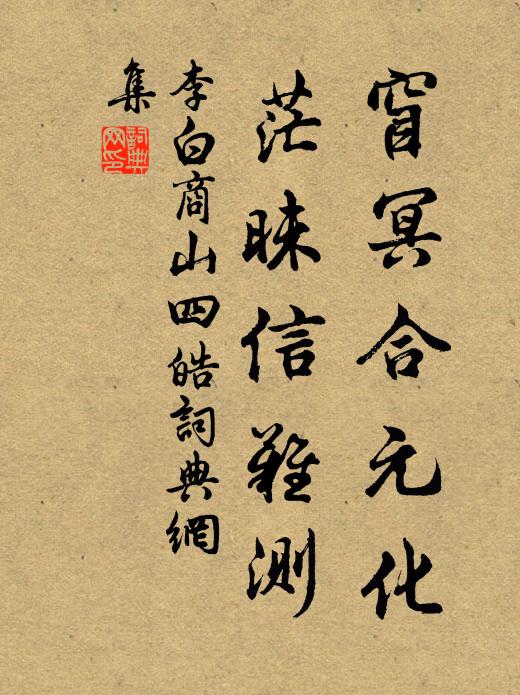 窅冥合元化
茫昧信難測
李白商山四皓詞典網
集
詞典
网印